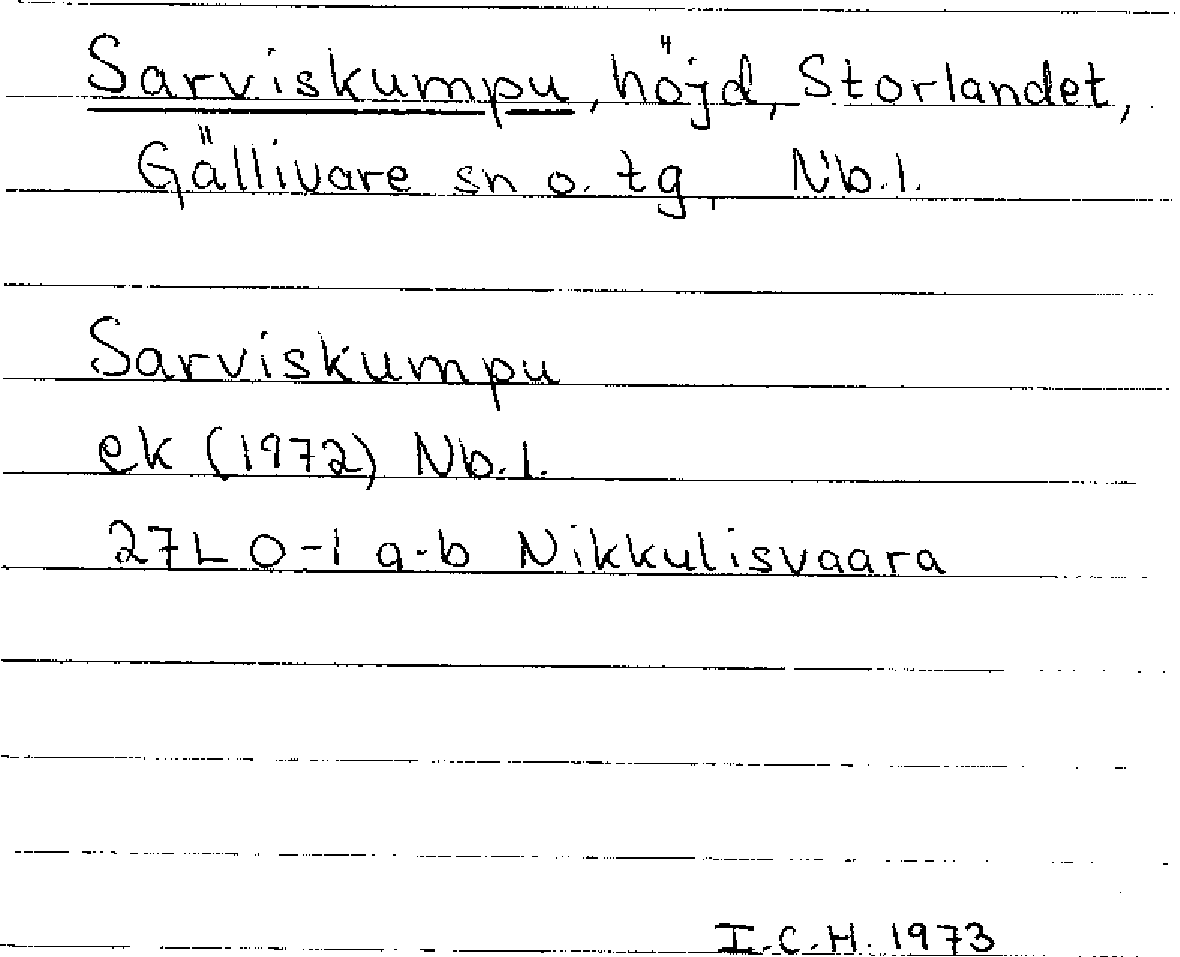 Sarviskumpu, höjd, Storlandet,
Gällivare sn o. tg, Nb.l.
Sarviskumpu
ek (1972) Nb.l.
27L 0-1 a-b Nikkulisvaara
I.C.H. 1973